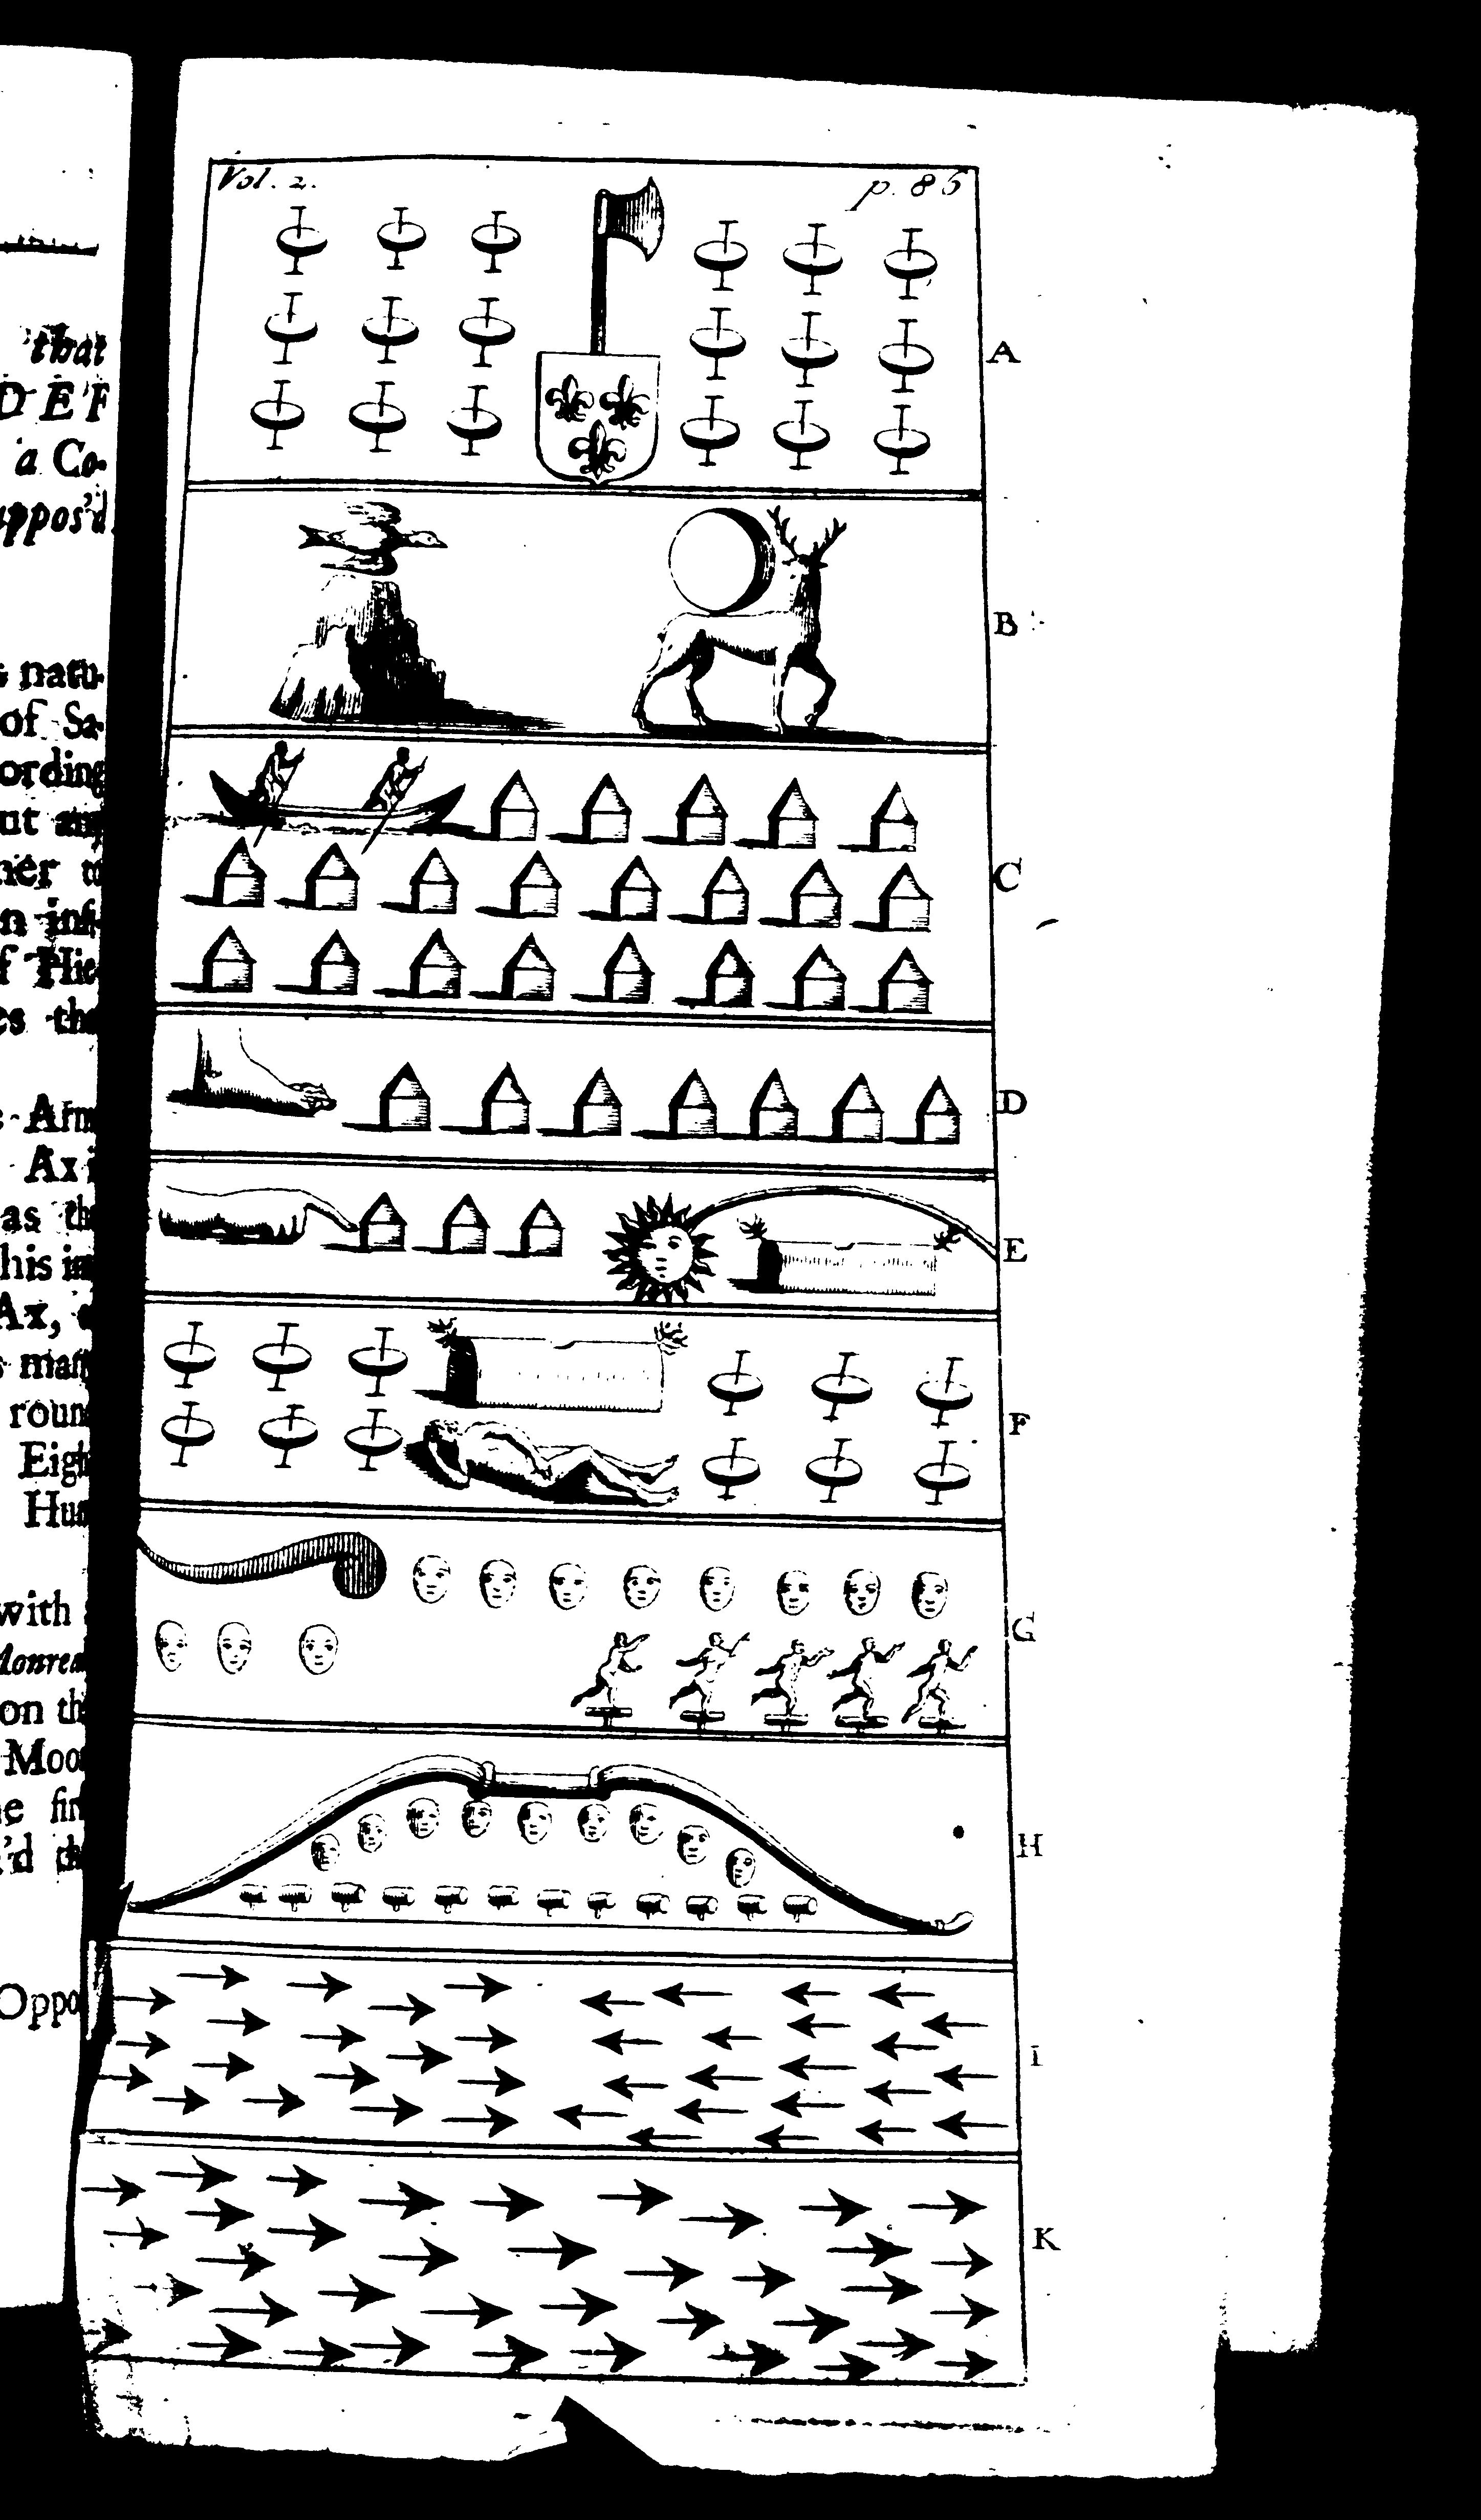 'that
a Co-
uppos'd
natu-
of Sa-
ording
ut any
ner
n infi-
f Hie-
es the
Arm
Ax
as the
his
Ax,
man
roun
Eigh
Hun
with
Monrea
on th
Moo
he fir
'd th
Oppo
Vol. 2.
p. 86
A
B
C
D
E
F
G
H
I
K